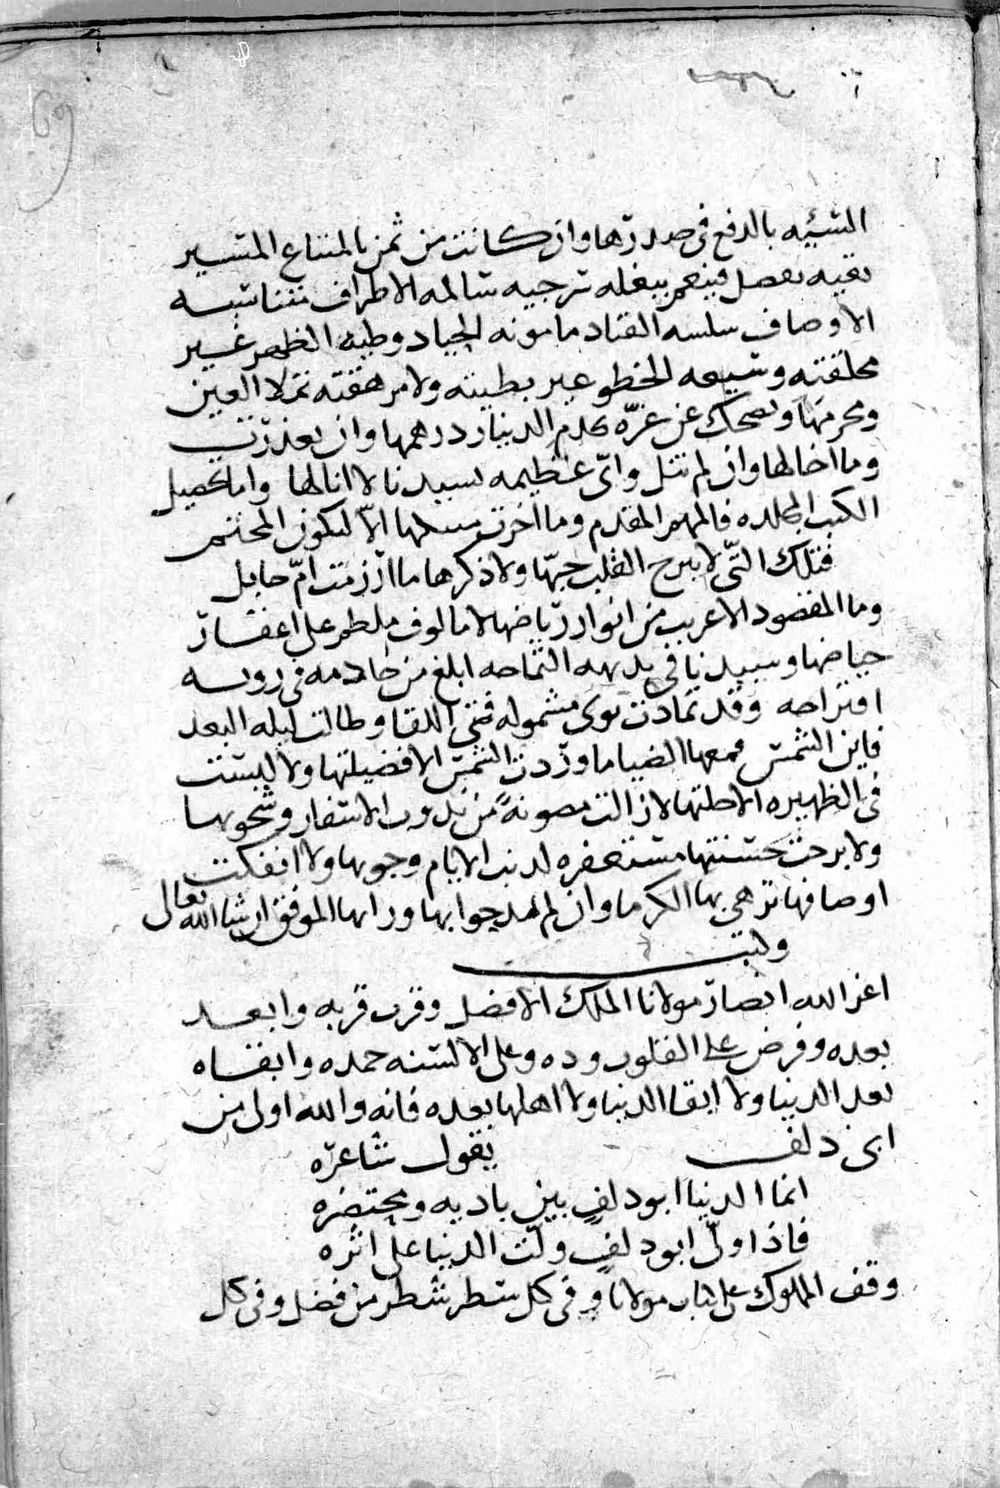 السنيه بالدفع في صدرها وان كانت من ثمن المتاع المتيسر
بقيه تفضل فينعم ببغله ترجيه سالمه الاطراف متناسبه
الاوصاف سلسه القياد مامونه الجياد وطيه الظهر غير
مخلفته وسيعه الخطو غير بطيته ولا مرهقته تملا العين
ومحزمها وتضحك عن غره كدم الدينار درهمها وان تعذرت
وما اخالها وان لم تنل واي عظيمه لسيدنا لا انالها واما تحصيل
الكتب المجلده فالمهم المقدم وما اخرت مسكها الا لتكون المختتم
فتلك التي لا يبرح القلب حبها ولا ذكرها ما ارزمت ام حايل
وما المقصود الا غريب من انوار رياضها لا مالوف ملطم على اعقار
حياضها وسيدنا في بديهه السماحه ابلغ من خادمه في رويه
اقتراحه وقد تمادت نوى مشموله فمتى اللقا وطالت ليله البعد
فاين الشمس معها الضيا ما وردت الشمس الا فضيلتها ولا لبست
في الظهيره الا حلتها لا زالت مصونة من بدور الاسفار وشحوبها
ولا برحت حسنتها مستغفره لذنب الايام وحوبها ولا انفكت
اوصافها تزهى بها الكرما وان لم تهد جوابها ورايها الموفق ان شا الله تعالى
وكتب
اعز الله انصار مولانا الملك الافضل وقرب قربه وابعد
بعده وفرض على القلوب وده وعلى الالسنه حمده وابقاه
بعد الدنيا ولا ابقا الدنيا ولا اهلها بعده فانه والله اولى من
ابى دلف يقول شاعره
انما الدنيا ابو دلف بين باديه ومحتضره
فاذا ولى ابو دلف ولت الدنيا على اثره
وقف المملوك على كتاب مولانا وفى كل سطر شطر من فضل وفى كل